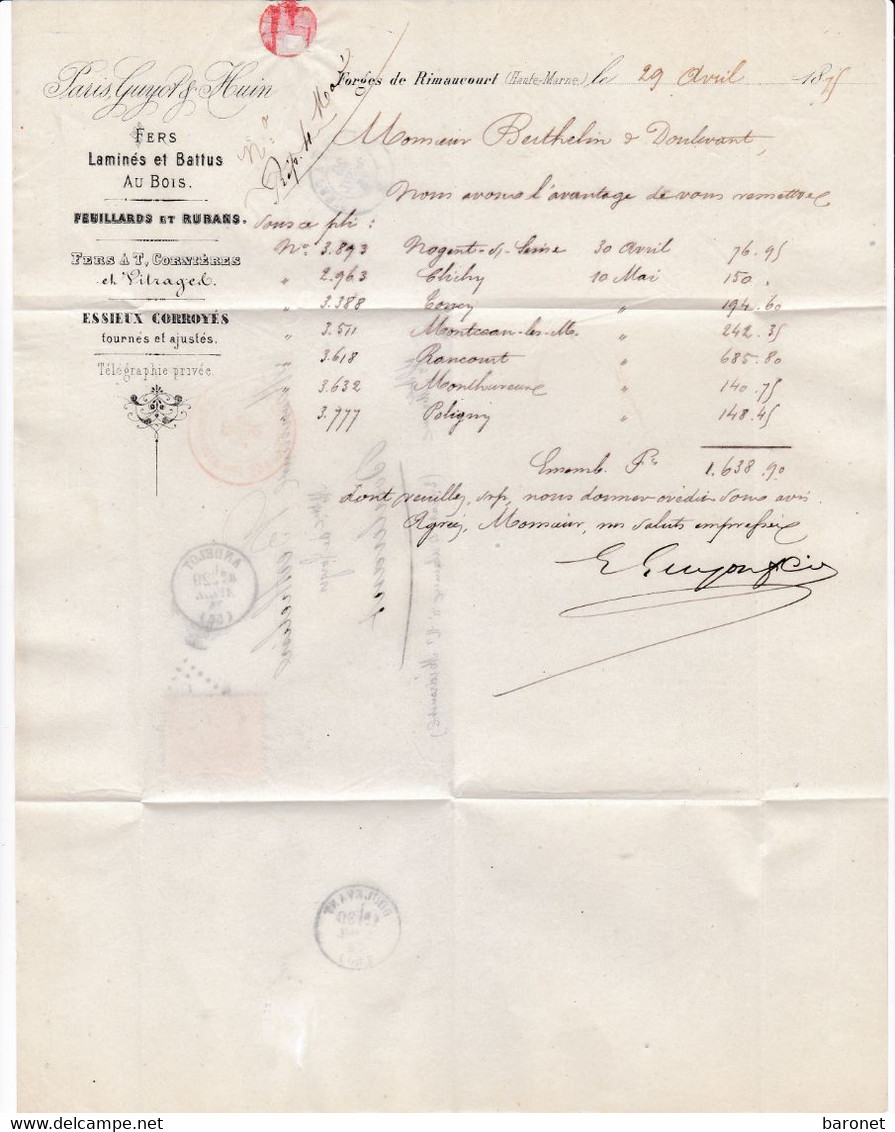 Paris, Guyot & Huin
FERS
Laminés et Battus
AU BOIS.
FEUILLARDS ET RUBANS.
FERS À T, CORNIÈRES
et Vitrages.
ESSIEUX CORROYÉS
tournés et ajustés.
Télégraphie privée.
Nº
Rép. 4 Mai
Forges de Rimaucourt (Haute-Marne,) le 29 Avril 1875
Monsieur Berthelin à Doulevant,
Nous avons l'avantage de vous remettre
sous ce pli :
Nº 3.893 Nogent-s/-Seine 30 Avril 76.95
" 2.963 Clichy 10 Mai 150 .
" 3.388 " 194.60
" 3.511 Montceau-les-M. " 242.35
" 3.618 Rancourt " 685.80
" 3.632 Monthureux " 140.75
" 3.777 Poligny " 148.45
Ensemb. Fs 1.638.90
Dont veuillez, svp, nous donner crédit sous avis
Agréez, Monsieur, nos saluts empressés
ANDELOT
DOULEVANT
Delcampe.net
baronet